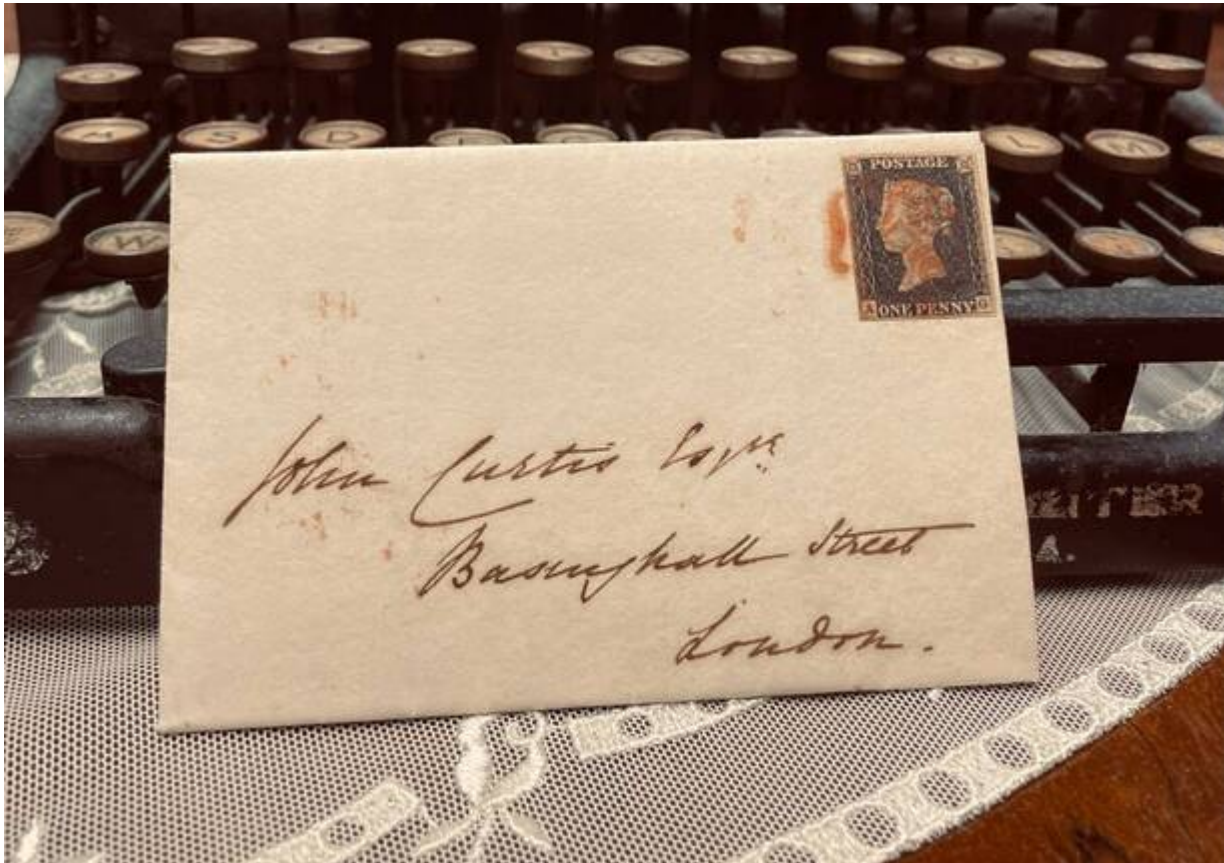 POSTAGE
A ONE PENNY G
John Curtis Esqre
Basinghall Street
London.
S D
W
L M